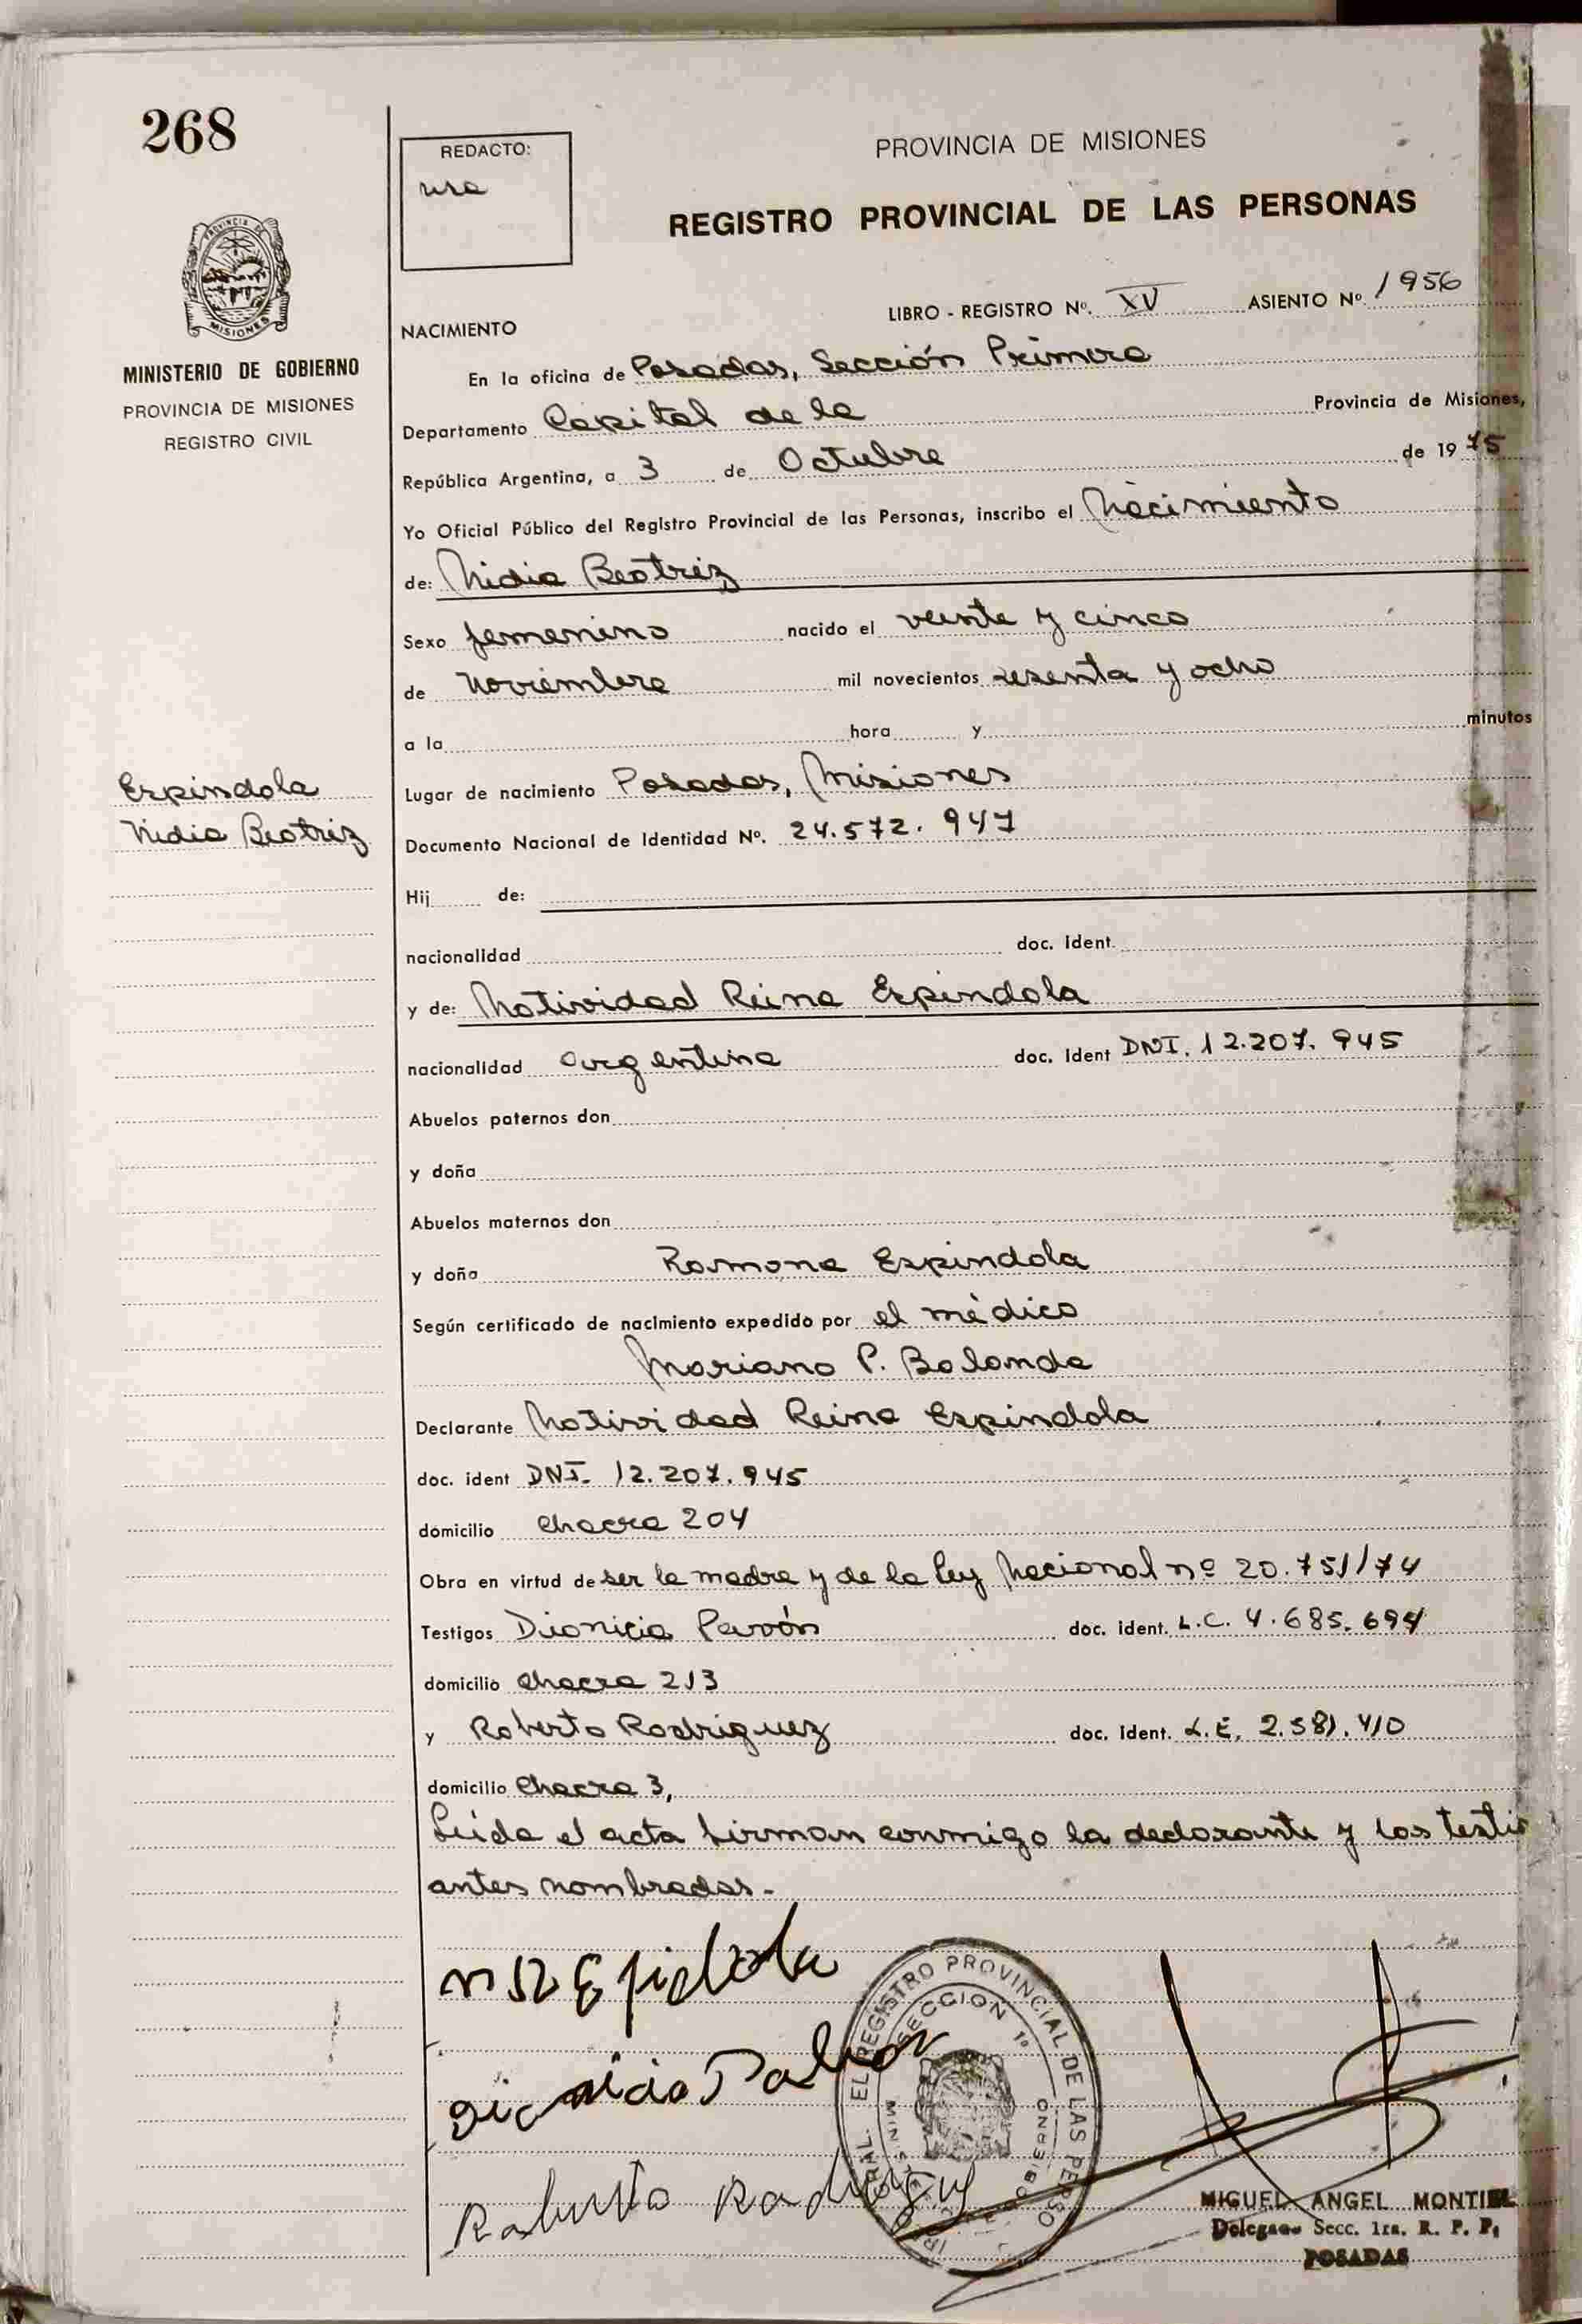 268
REDACTO:
PROVINCIA DE MISIONES
REGISTRO PROVINCIAL DE LAS PERSONAS
MISIONES
MINISTERIO DE GOBIERNO
PROVINCIA DE MISIONES
REGISTRO CIVIL
LIBRO - REGISTRO Nº. XV ASIENTO Nº. 1956
NACIMIENTO
En la oficina de Posadas, Sección Primera
Departamento Capital de la Provincia de Misiones,
República Argentina, a 3 de Octubre de 1975
Yo Oficial Público del Registro Provincial de las Personas, inscribo el Nacimiento
de: Nidia Beatriz
Sexo femenino nacido el veinte y cinco
de noviembre mil novecientos sesenta y ocho
a la hora y minutos
Espindola
Nidia Beatriz
Lugar de nacimiento Posadas, Misiones
Documento Nacional de Identidad Nº. 24.572.947
Hij de:
nacionalidad doc. ident.
y de: Natividad Reina Espindola
nacionalidad argentina doc. ident DNI. 12.207.945
Abuelos paternos don
y doña
Abuelos maternos don
y doña Ramona Espindola
Según certificado de nacimiento expedido por el médico
Mariano P. Balonda
Declarante Natividad Reina Espindola
doc. ident DNI. 12.207.945
domicilio chacra 204
Obra en virtud de ser la madre y de la ley Nacional nº 20.751/74
Testigos Dionicia Pavón doc. ident. L.C. 4.685.694
domicilio chacra 213
y Roberto Rodriguez doc. ident. L.E. 2.581.410
domicilio chacra 3,
Leída el acta firman conmigo la declarante y los testi
antes nombrados.-
Roberto
EL REGISTRO PROVINCIAL DE LAS PERSO
SECCION 1º
MIGUEL ANGEL MONTIEL
Delegado Secc. 1ra. R. P. P.
POSADAS